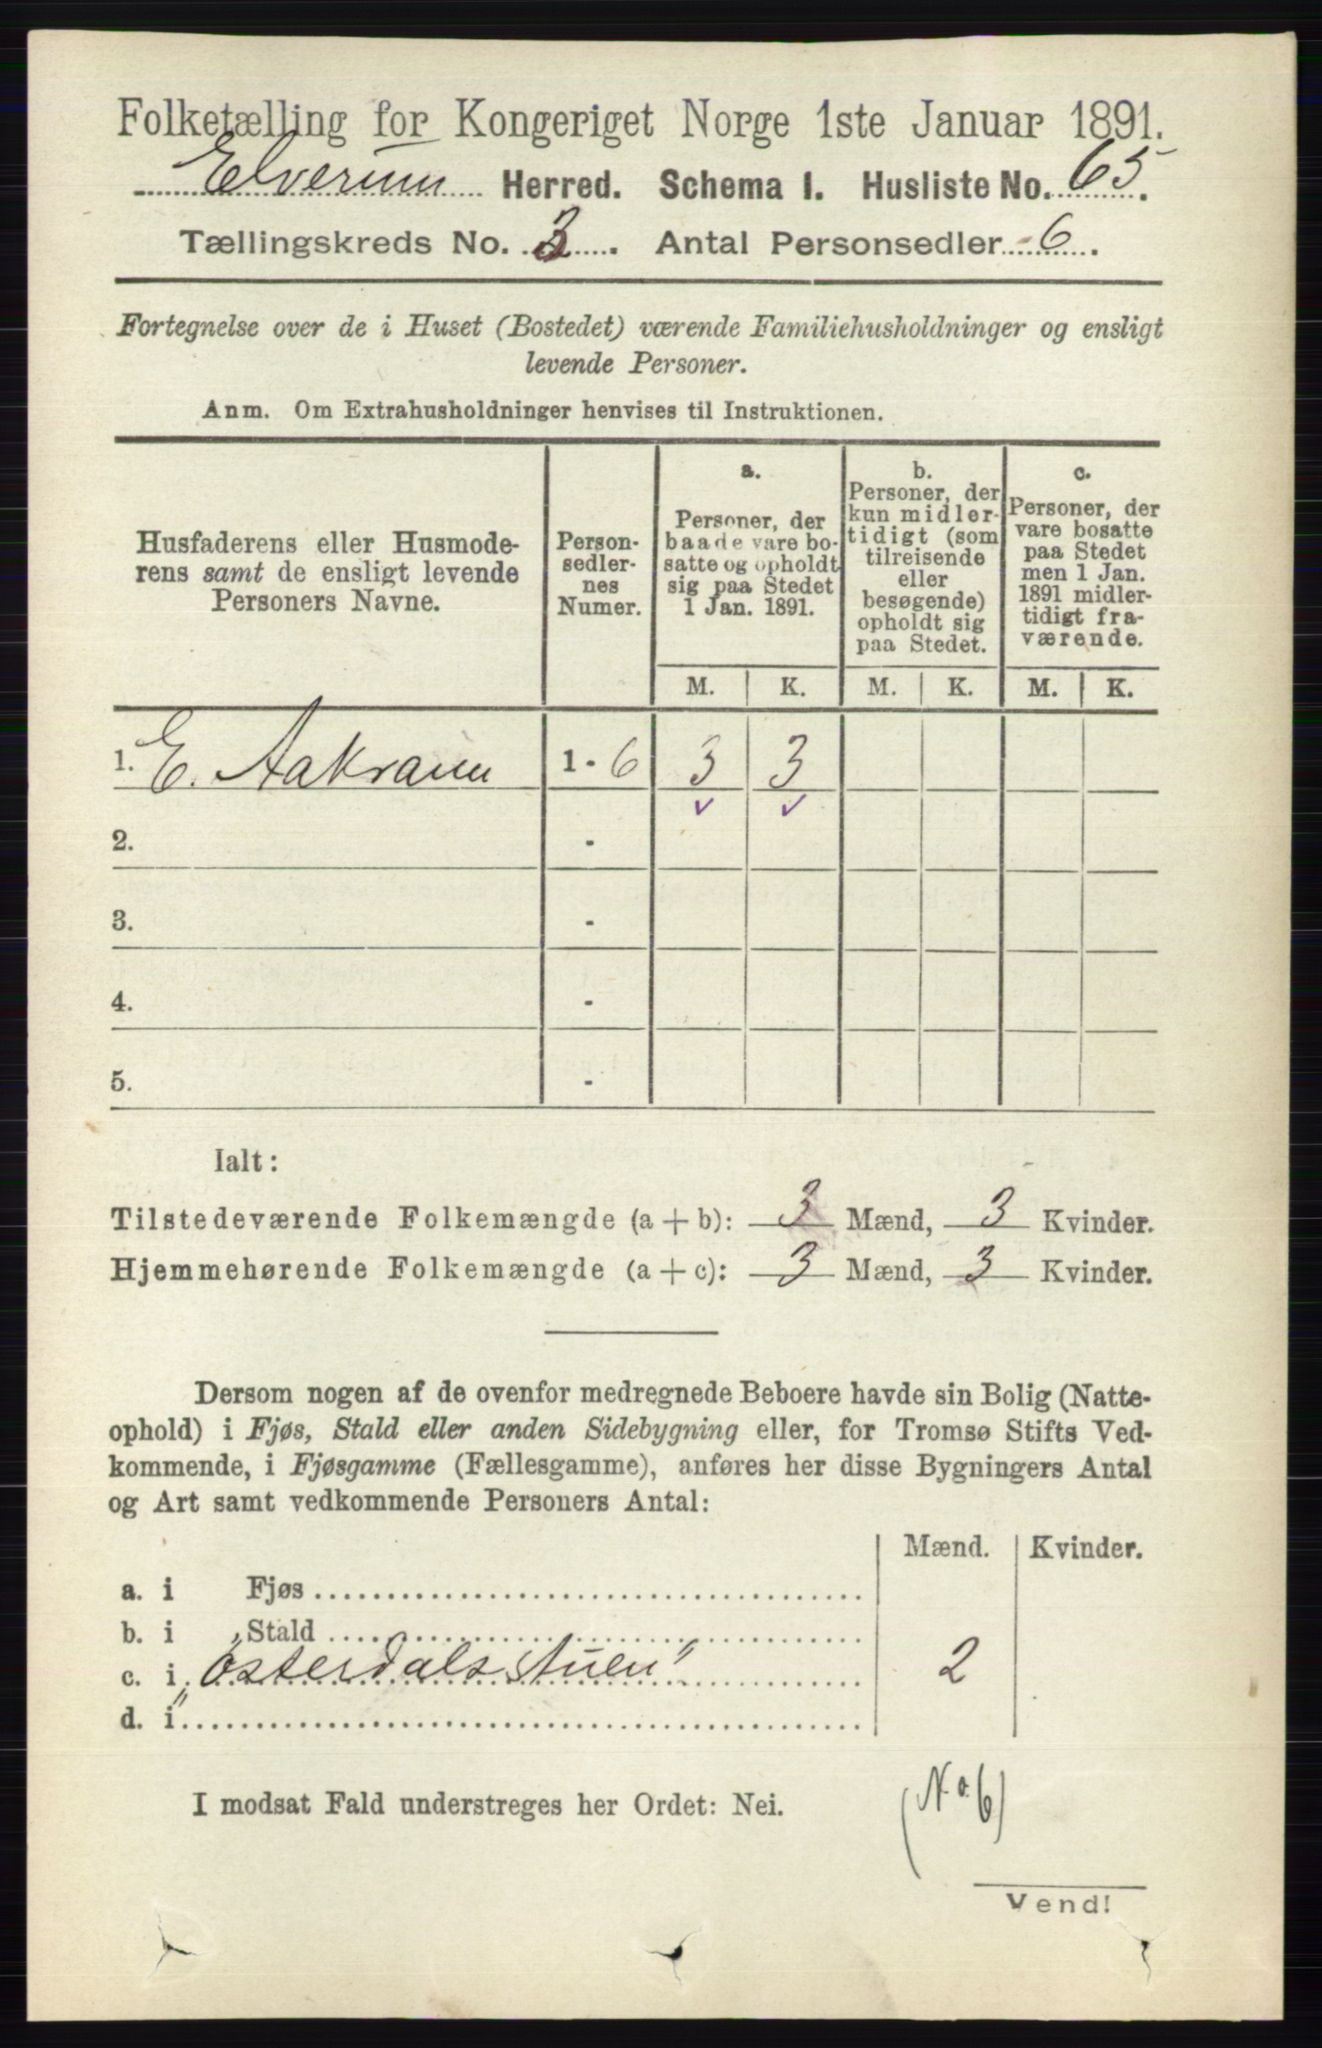 Folketælling for Kongeriget Norge 1ste Januar 1891.
Elverum Herred. Schema I. Husliste No. 65.
Tællingskreds No. 3. Antal Personsedler 6.
Fortegnelse over de i Huset (Bostedet) værende Familiehusholdninger og ensligt
levende Personer.
Anm. Om Extrahusholdninger henvises til Instruktionen.
Husfaderens eller Husmode-
rens samt de ensligt levende
Personers Navne.
Person-
sedler-
nes
Numer.
a.
Personer, der
baade vare bo-
satte og opholdt
sig paa Stedet
1 Jan. 1891.
b.
Personer, der
kun midler-
tidigt (som
tilreisende
eller
besøgende)
opholdt sig
paa Stedet.
c.
Personer, der
vare bosatte
paa Stedet
men 1 Jan.
1891 midler-
tidigt fra-
værende.
M. K. M. K. M. K.
1. E. Aakrann 1 - 6 3 3
2. -
3. -
4. -
5. -
Ialt:
Tilstedeværende Folkemængde (a + b): 3 Mænd, 3 Kvinder.
Hjemmehørende Folkemængde (a + c): 3 Mænd, 3 Kvinder.
Dersom nogen af de ovenfor medregnede Beboere havde sin Bolig (Natte-
ophold) i Fjøs, Stald eller anden Sidebygning eller, for Tromsø Stifts Ved-
kommende, i Fjøsgamme (Fællesgamme), anføres her disse Bygningers Antal
og Art samt vedkommende Personers Antal:
Mænd. Kvinder.
a. i Fjøs
b. i Stald
c. i "Østerdalsstuen" 2
d. i
I modsat Fald understreges her Ordet: Nei.
(No. 6)
Vend!